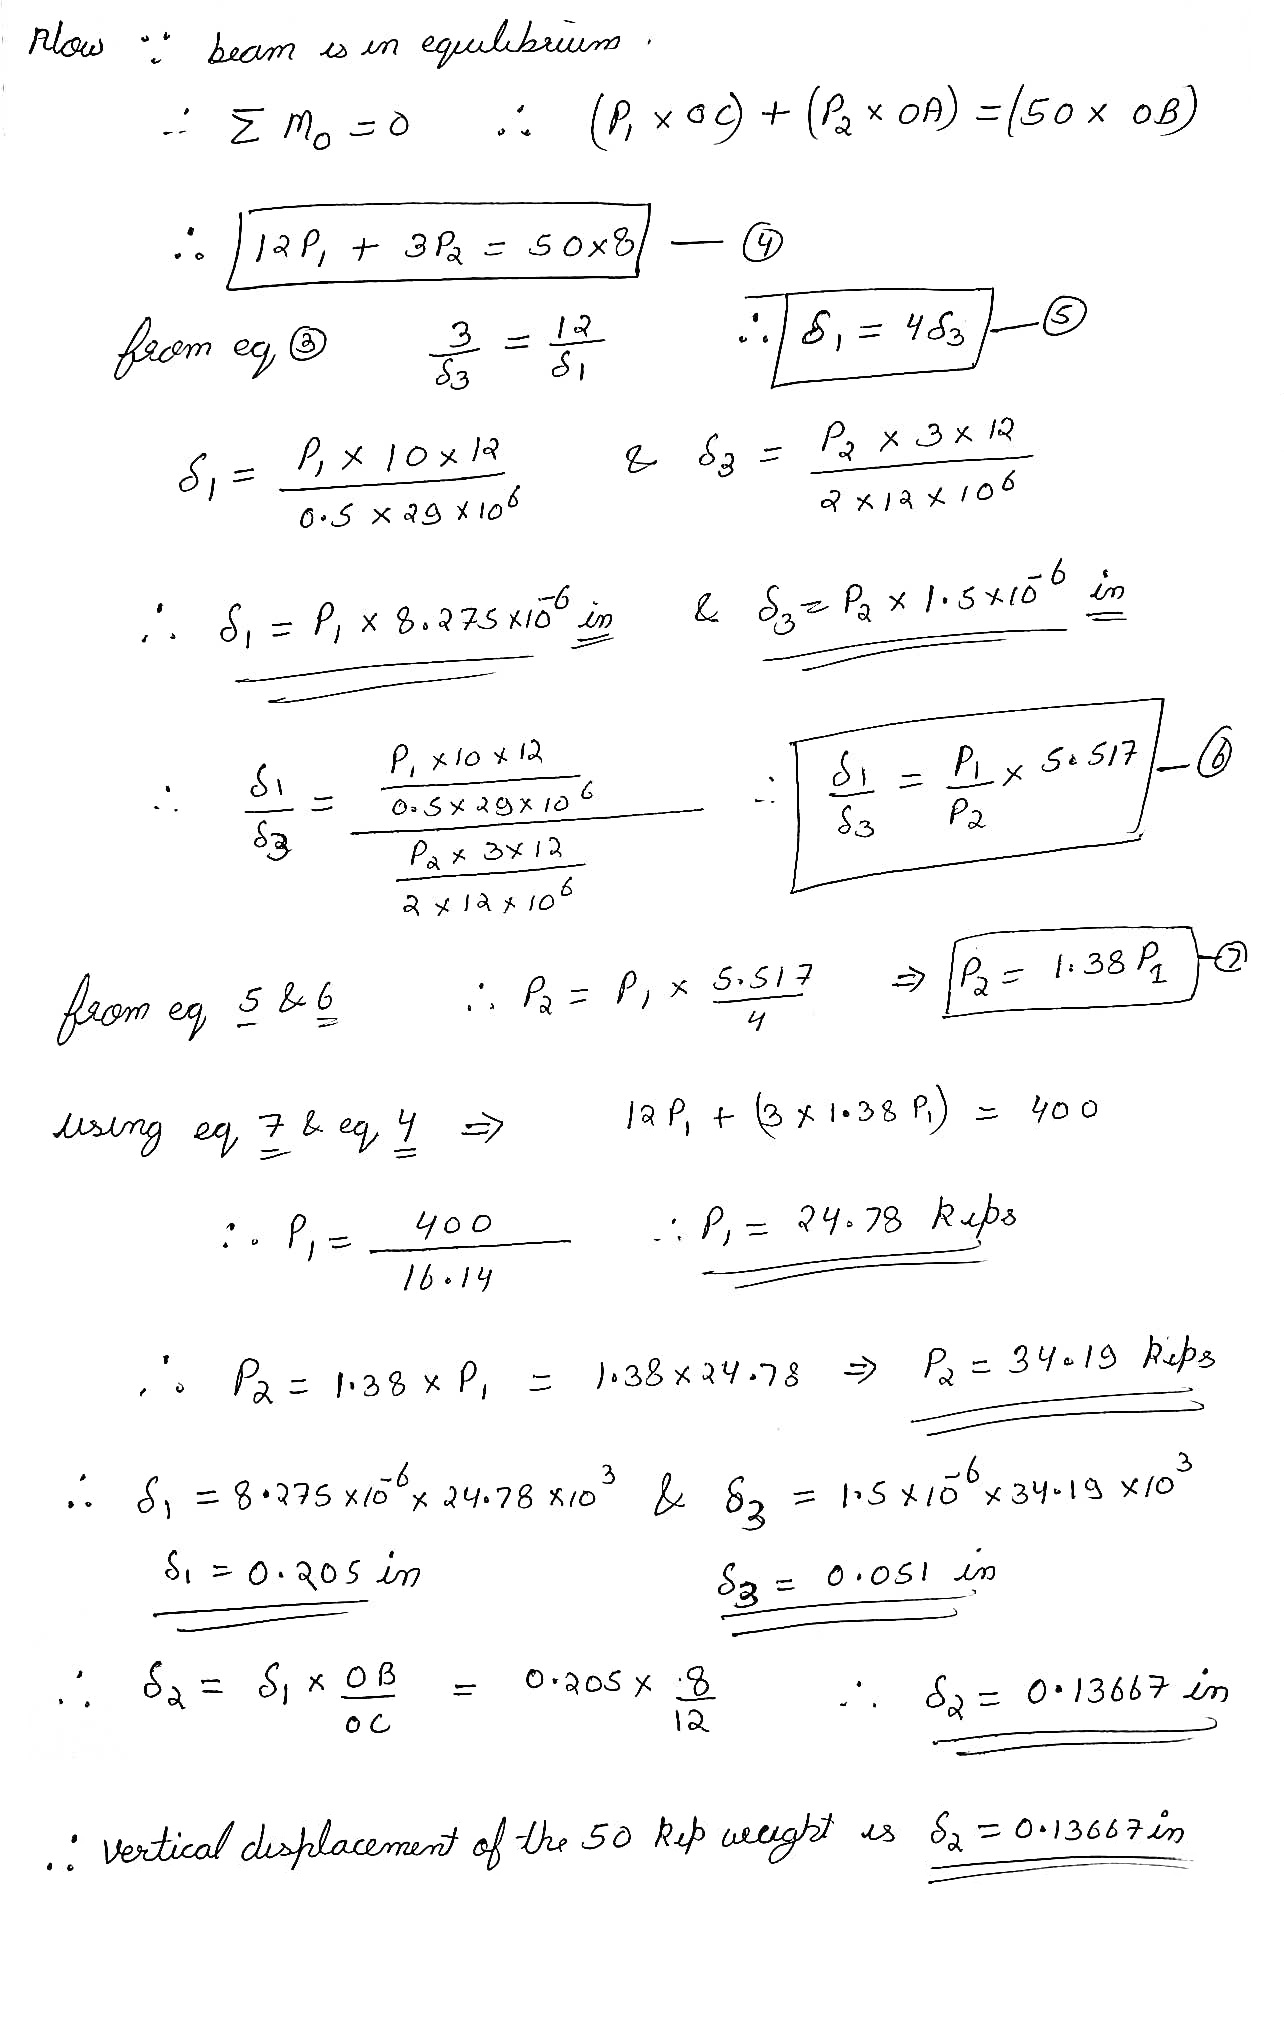 Now ∵ beam is in equilibrium.
∴ Σ M₀ = 0 ∴ (P₁ × OC) + (P₂ × OA) = (50 × OB)
∴ 12P₁ + 3P₂ = 50×8 — ④
from eq ③ 3/δ3 = 12/δ1 ∴ δ1 = 4δ3 — ⑤
δ1 = (P₁ × 10 × 12)/(0.5 × 29 × 10⁶) & δ3 = (P₂ × 3 × 12)/(2 × 12 × 10⁶)
∴ δ1 = P₁ × 8.275×10⁻⁶ in & δ3 = P₂ × 1.5×10⁻⁶ in
∴ δ1/δ3 = ((P₁ × 10 × 12)/(0.5 × 29 × 10⁶))/((P₂ × 3 × 12)/(2 × 12 × 10⁶)) ∴ δ1/δ3 = P₁/P₂ × 5.517 — ⑥
from eq 5 & 6 ∴ P₂ = P₁ × 5.517/4 ⇒ P₂ = 1.38 P₁ — ⑦
using eq 7 & eq 4 ⇒ 12P₁ + (3 × 1.38 P₁) = 400
∴ P₁ = 400/16.14 ∴ P₁ = 24.78 kips
∴ P₂ = 1.38 × P₁ = 1.38 × 24.78 ⇒ P₂ = 34.19 kips
∴ δ1 = 8.275 × 10⁻⁶ × 24.78 × 10³ & δ3 = 1.5 × 10⁻⁶ × 34.19 × 10³
δ1 = 0.205 in δ3 = 0.051 in
∴ δ2 = δ1 × OB/OC = 0.205 × 8/12 ∴ δ2 = 0.13667 in
∴ vertical displacement of the 50 kip weight is δ2 = 0.13667 in